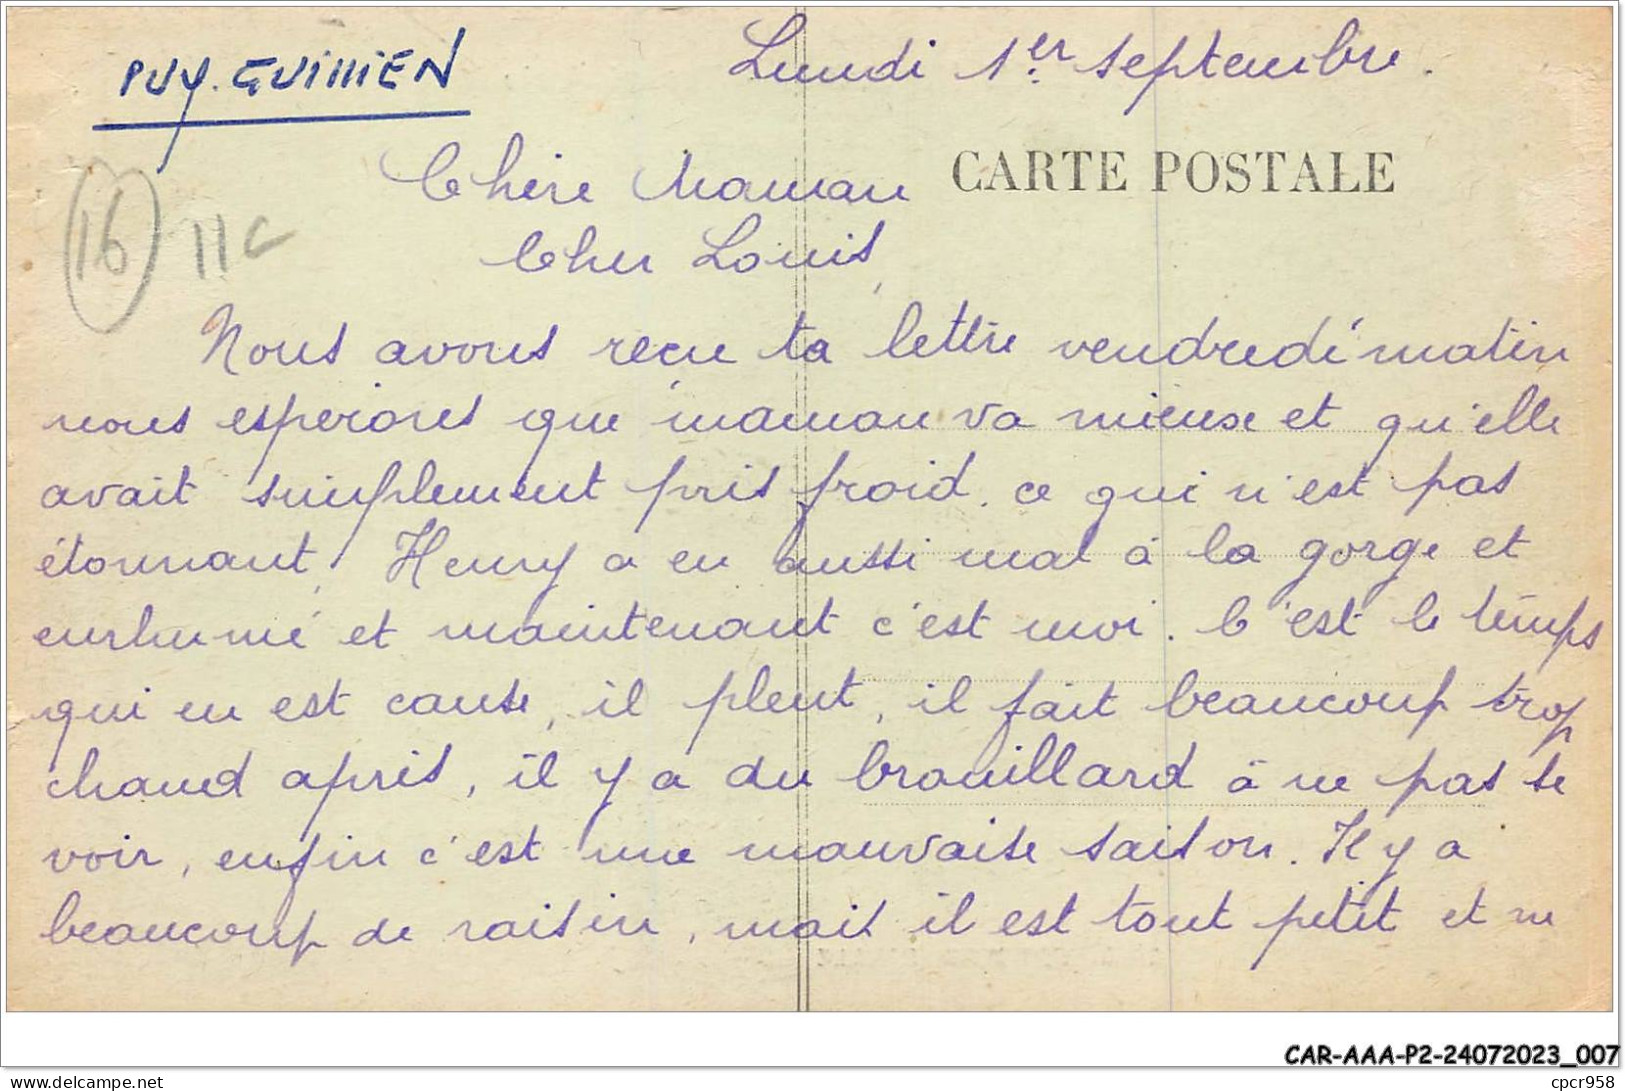 PUY. GUILLIEN
Lundi 1er septembre.
CARTE POSTALE
Chère Maman
Cher Louis,
16 11c
Nous avons reçu ta lettre vendredi matin
nous esperons que maman va mieux et qu'elle
avait simplement pris froid, ce qui n'est pas
étonnant, Henry a eu aussi mal à la gorge et
enrhumé et maintenant c'est moi. C'est le temps
qui en est cause, il pleut, il fait beaucoup trop
chaud après, il y a du brouillard à ne pas se
voir, enfin c'est une mauvaise saison. Il y a
beaucoup de raisin, mais il est tout petit et ne
CAR-AAA-P2-24072023_007
www.delcampe.net
cpcr958